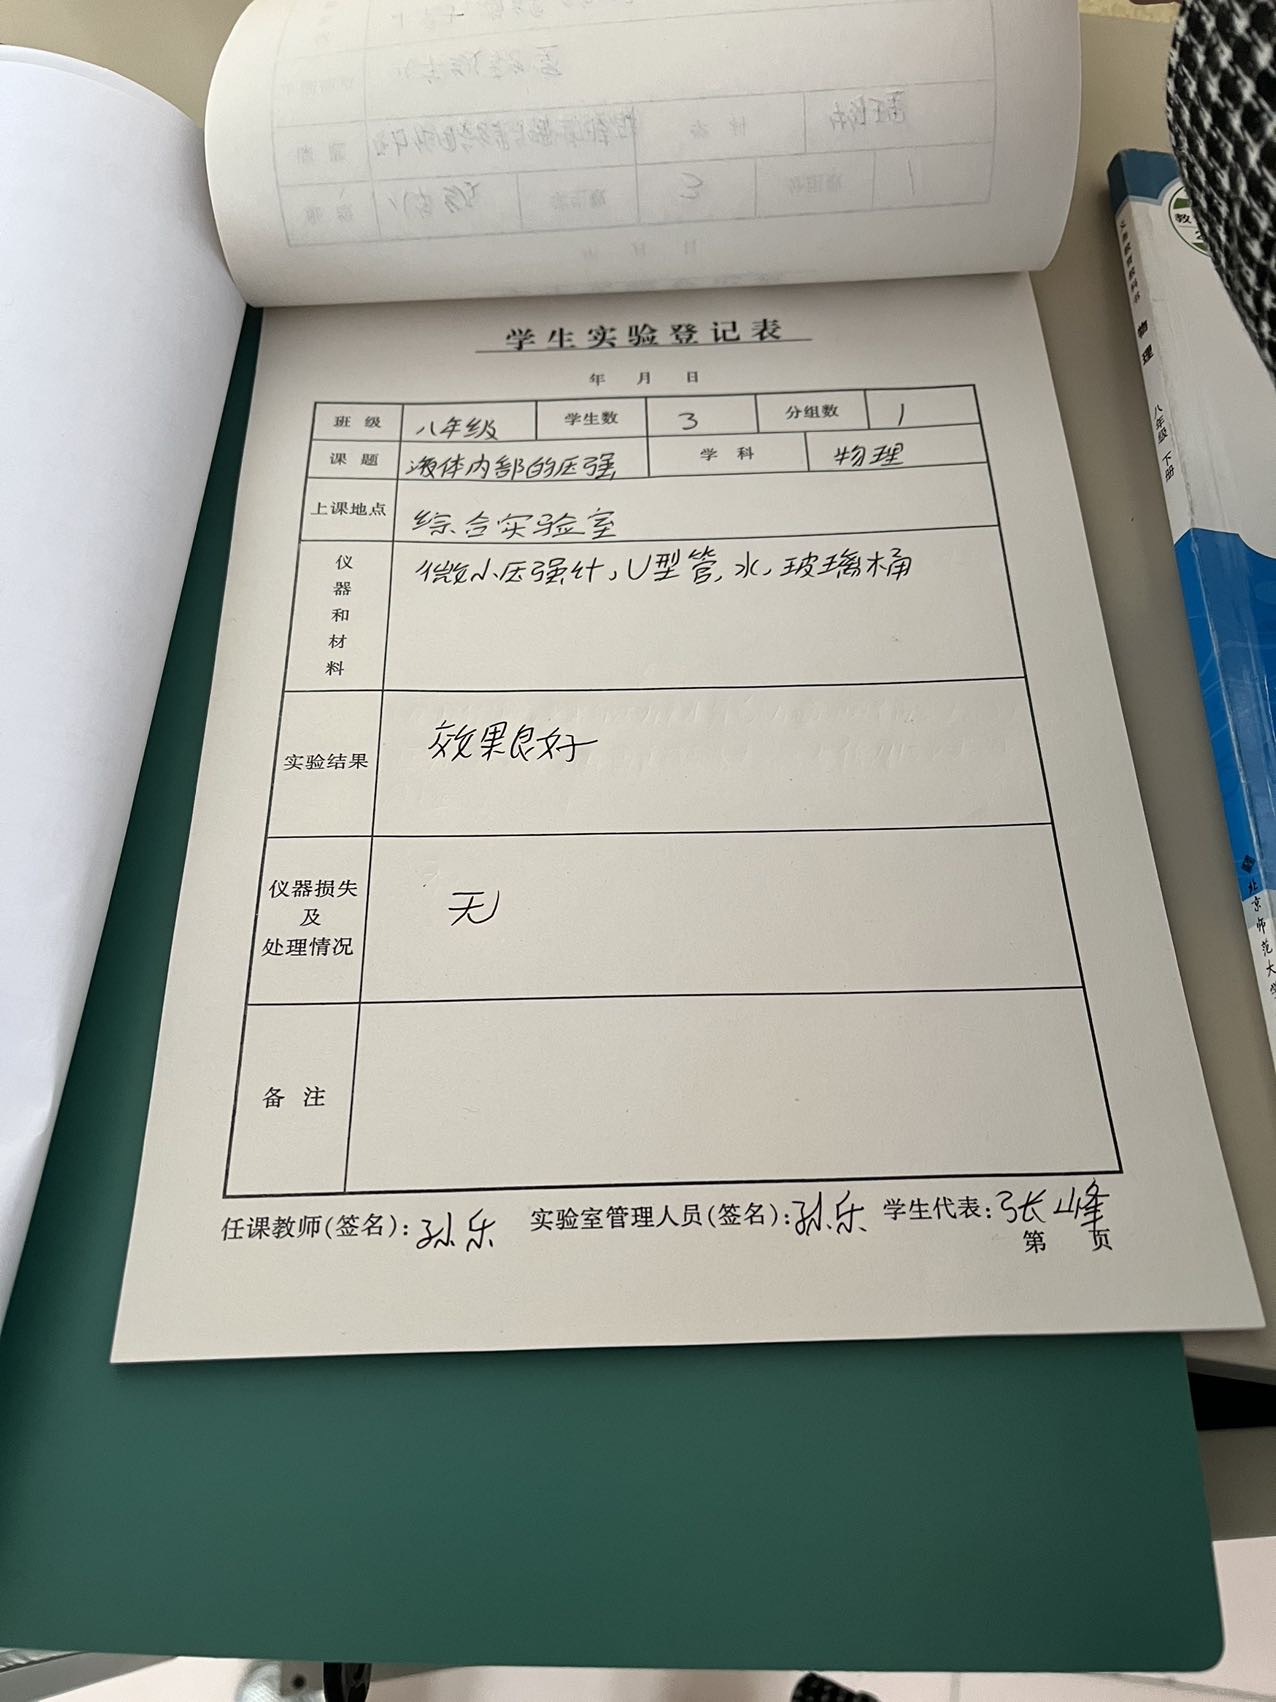 学生实验登记表
年 月 日
班级 八年级 学生数 3 分组数 1
课题 液体内部的压强 学科 物理
上课地点 综合实验室
仪器和材料 微小压强计，U型管，水，玻璃桶
实验结果 效果良好
仪器损失及处理情况 无
备注
任课教师(签名): 孙乐 实验室管理人员(签名): 孙乐 学生代表: 张峰
第 页
物理 八年级 下册
北京师范大学